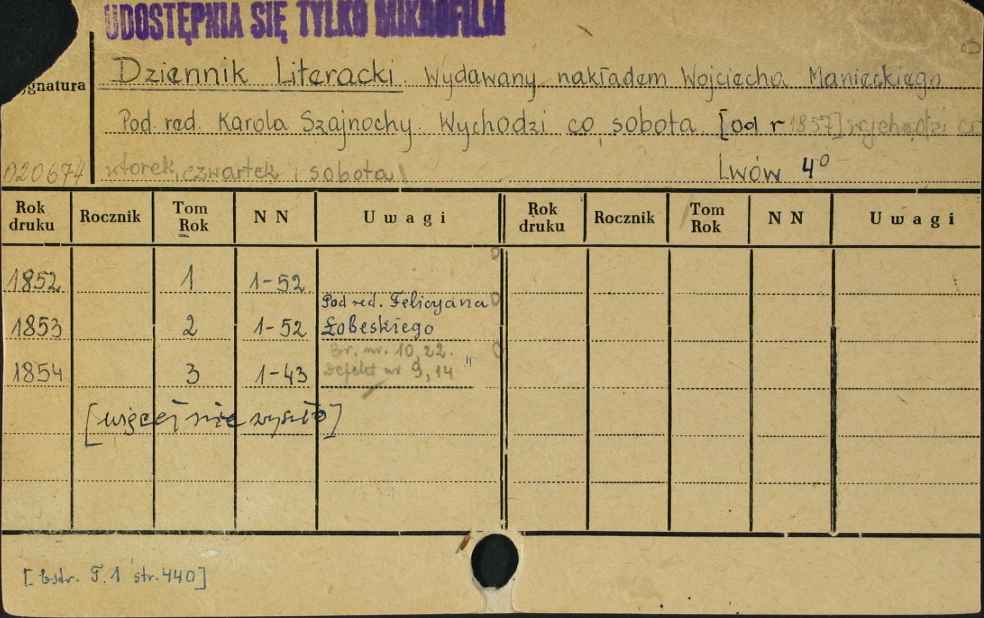 UDOSTĘPNIA SIĘ TYLKO MIKROFILM
Dziennik Literacki. Wydawany nakładem Wojciecha Manieckiego
gnatura
Pod red. Karola Szajnochy. Wychodzi co sobota. [od r 1857] wychodzi co
020674 wtorek, czwartek i sobota] Lwów 4⁰
Rok druku Rocznik Tom Rok NN Uwagi Rok druku Rocznik Tom Rok NN Uwagi
1852 1 1-52
Pod red. Felicyana
1853 2 1-52 Łobeskiego
Br. nr. 10, 22.
1854 3 1-43 Defekt nr 9, 14 "
[więcej nie wyszło]
[Estr. T.1 str. 440]